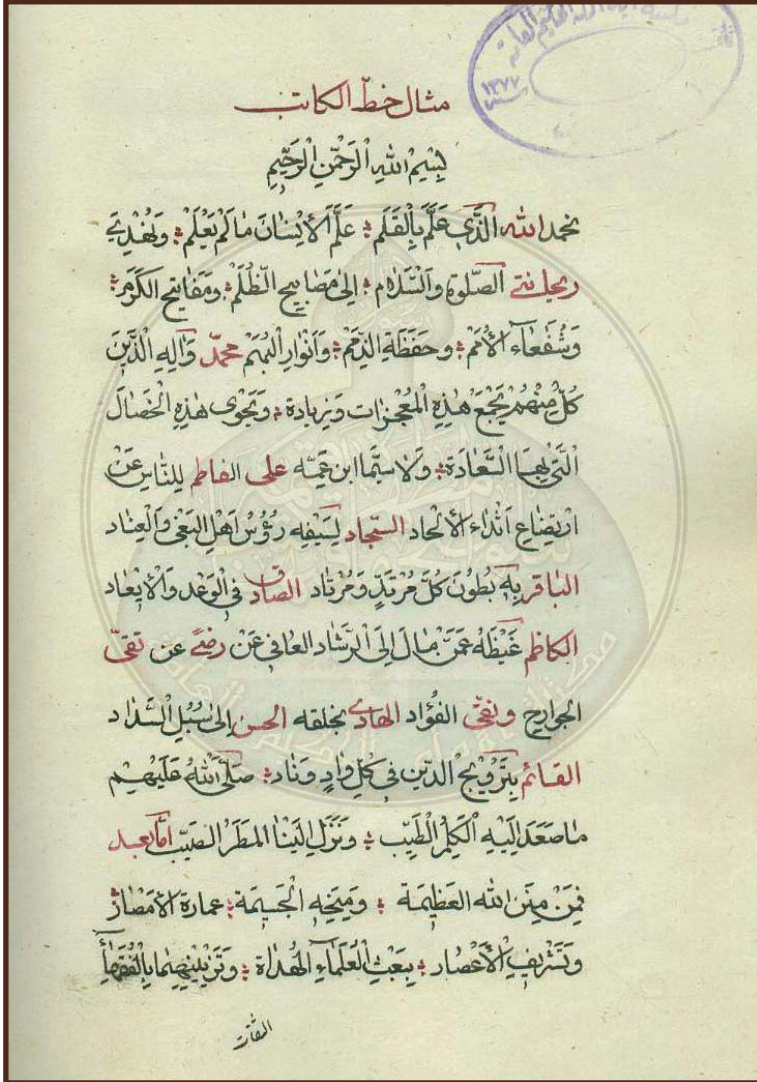 مثال خطّ الكاتب
بِسْمِ اللهِ الرَّحْمٰنِ الرَّحِيْمِ
نحمد الله الَّذي عَلَّمَ بِالْقَلَمِ علَّمَ الْاِنْسٰانَ مٰا لَمْ يَعْلَمْ وَنُهْدي
الصّلوة والسّلام اِلىٰ مَصٰابيحِ الظُّلَمْ ومَفٰاتيحِ الكَرَمِ
وَشُفَعٰاءِ الْاُمَمْ وحَفَظَةِ الذِّمَمْ وَاَنْوارِ البُهَمْ محمّد وَآلِهِ الَّذينَ
كُلٌّ مِنْهُمْ يَجْمَعُ هٰذِهِ الْمُعْجِزات وَزيادة وَيَحْوى هٰذِهِ الْخِصٰالَ
الَّتي بِهَا السَّعادَة وَلا سيَّما ابن عَمِّه على الفاطم لِلنّاسِ عَنْ
ارْتِضٰاعِ اَثْداءِ الْالحاد السّجاد لِسَيْفِه رُؤُسُ اَهْلِ البَغْى وَالْعِناد
الباقر بِهِ بُطُونَ كُلِّ مُرْتَدٍّ وَمُرْتاد الصادق في الْوَعْدِ وَالْايعاد
الكاظم غَيْظَهُ عَمَّنْ مٰالَ اِلَى الرَّشاد العافى عَنْ رضىً عن تقىّ
الجوارح ونقىّ الفُؤاد الهادى بخلقه الحسن اِلىٰ سُبُلِ السَّداد
القائم بِتَرْويجِ الدّين فى كُلِّ وٰادٍ وَناد صَلَّى اللهُ عَلَيْهِم
مٰا صَعَدَ اِلَيْهِ الْكَلِمُ الْطَيِّب وَنَزَلَ اِلَيْنَا المَطَرُ الصَيِّب امّا بعد
فَمِنْ مِنَنِ الله العَظيمَة وَمِنَحِهِ الْجَسيمَة عمارة الْاَمْصٰارْ
وَتَشْريفِ الْاَعْصار بِبَعْثِ الْعُلَماءِ الْهُداة وَتَزْيينِهِمٰا بِالْفُقَهٰاءِ
الثقات
١٣٧٧